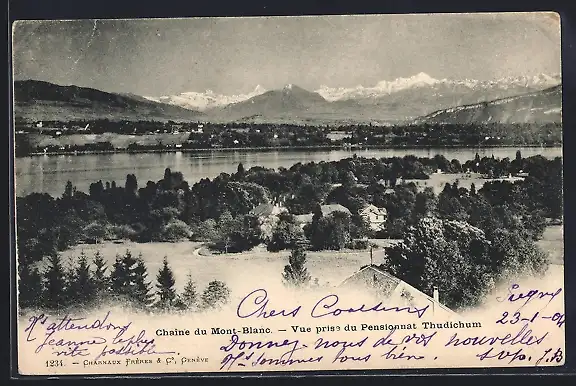 Chers Cousins
N'attendons
jeanne le plus
vite possible.
Pregny
23-1-04
Chaine du Mont-Blanc. — Vue prise du Pensionnat Thudichum
Donnez-nous de vos nouvelles
Nous sommes tous bien. svp. J.B.
1234. — Charnaux Frères & Cº, Genève